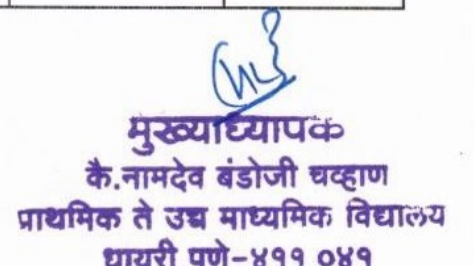 मुख्याध्यापक
कै.नामदेव बंडोजी चव्हाण
प्राथमिक ते उच्च माध्यमिक विद्यालय
धायरी पुणे-४११ ०४१